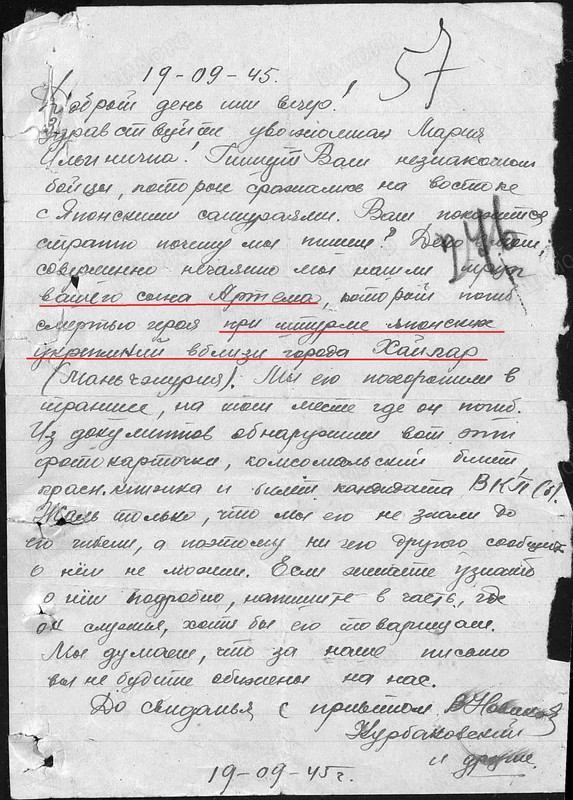 57
19-09-45.
Добрый день или вечер!
Здравствуйте уважаемая Мария
Ильинична! Пишут Вам незнакомые
бойцы, которые сражались на востоке
с Японскими самураями. Вам покажется
странно почему мы пишем? Дело в том,
246
совершенно нечаянно мы нашли труп
вашего сына Артема, который погиб
смертью героя при штурме японских
укреплений вблизи города Хайлар
(Маньчжурия). Мы его похоронили в
траншее, на том месте где он погиб.
Из документов обнаружили вот эти
фотокарточки, комсомольский билет
красн. книжка и билет кандидата ВКП(б).
Жаль только, что мы его не знали до
его гибели, а поэтому ничего другого сообщить
о нём не можем. Если хотите узнать
о нём подробно, напишите в часть, где
он служил, хотя бы его товарищам.
Мы думаем, что за наше письмо
вы не будите обижены на нас.
До свиданья с приветом В Новиков
Курбаковский
и другие.
19-09-45г.